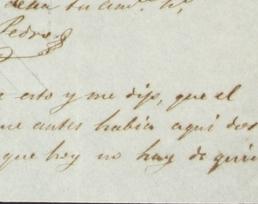 de su
Pedro
esto y me dijo, que el
que antes habia aqui dos
que hoy no hay de quien